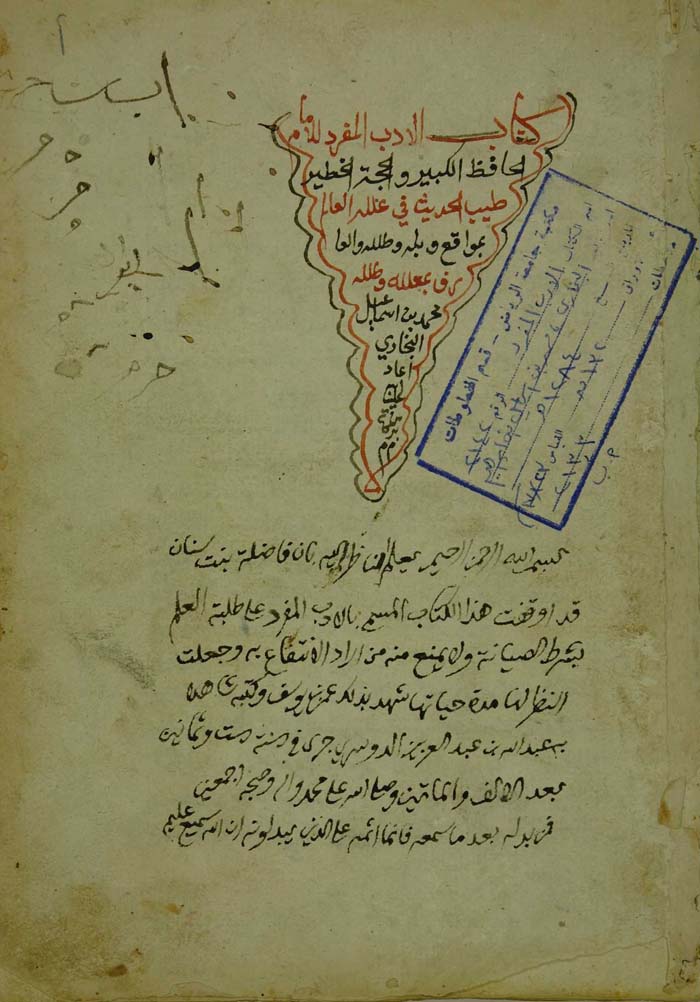 كتاب الادب المفرد للامام
الحافظ الكبير والحجة الخطير
طبيب الحديث في علله العالم
بمواقع وبله وطلله والعا
رف بعلله وطلله
محمد بن اسماعيل
البخاري
اعاد
مكتبة جامعة الرياض - قسم المخطوطات
اسم الكتاب الادب المفرد
بسم الله الرحمن الرحيم يعلم الناظر اليه بان فاضلة بنت سنان
قد اوقفت هذا الكتاب المسمى بالادب المفرد على طلبة العلم
بشرط الصيانة ولا يمنع منه من اراد الانتفاع به وجعلت
النظر لها مدة حياتها شهد بذلك عمر بن يوسف وكتبه شاهدا
به عبدالله بن عبد العزيز الدوسري جرى في سنة ست وثمانين
بعد الالف والماتين وصلى الله على محمد واله وصحبه اجمعين
فمن بدله بعد ما سمعه فانما اثمه على الذين يبدلونه ان الله سميع عليم